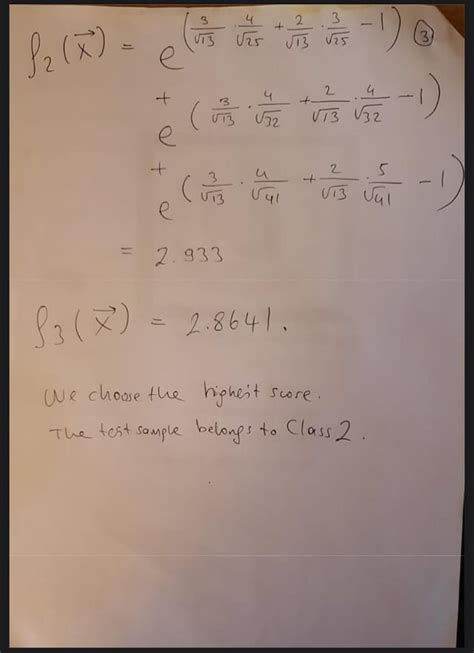 ρ₂(x⃗) = e^(3/√13 · 4/√25 + 2/√13 · 3/√25 − 1) ③
+ e^(3/√13 · 4/√32 + 2/√13 · 4/√32 − 1)
+ e^(3/√13 · 4/√41 + 2/√13 · 5/√41 − 1)
= 2.933
ρ₃(x⃗) = 2.8641.
We choose the highest score.
The test sample belongs to Class 2.